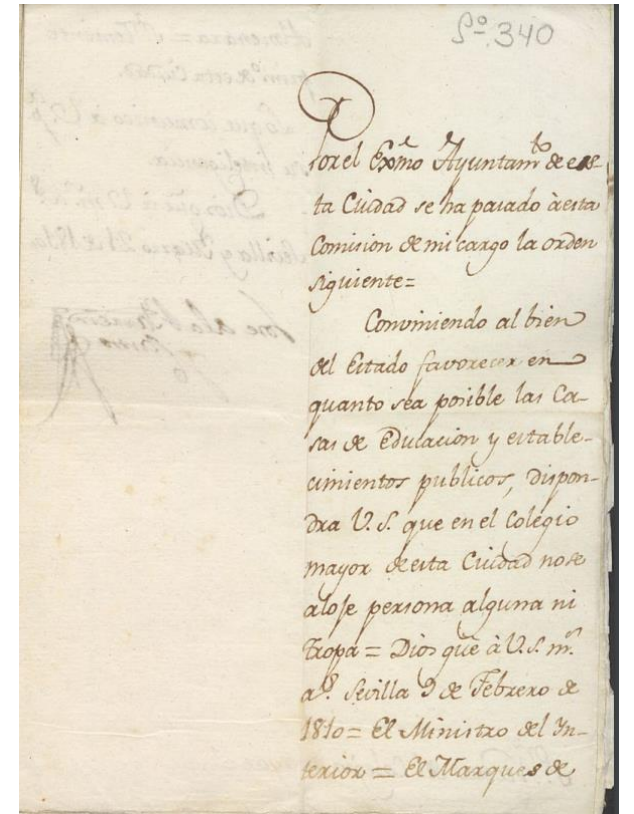 Sº 340
Por el Exmô Ayuntamtº de es-
ta Ciudad se ha pasado à esta
Comision de mi cargo la orden
siguiente=
Conviniendo al bien
del Estado favorecer en
quanto sea posible las Ca-
sas de Educacion y estable-
cimientos publicos, dispon-
dra V.S. que en el Colegio
mayor de esta Ciudad no se
aloje persona alguna ni
tropa = Dios güe à V.S. ms.
as. Sevilla 9 de Febrero de
1810= El Ministro del In-
terior = El Marques de